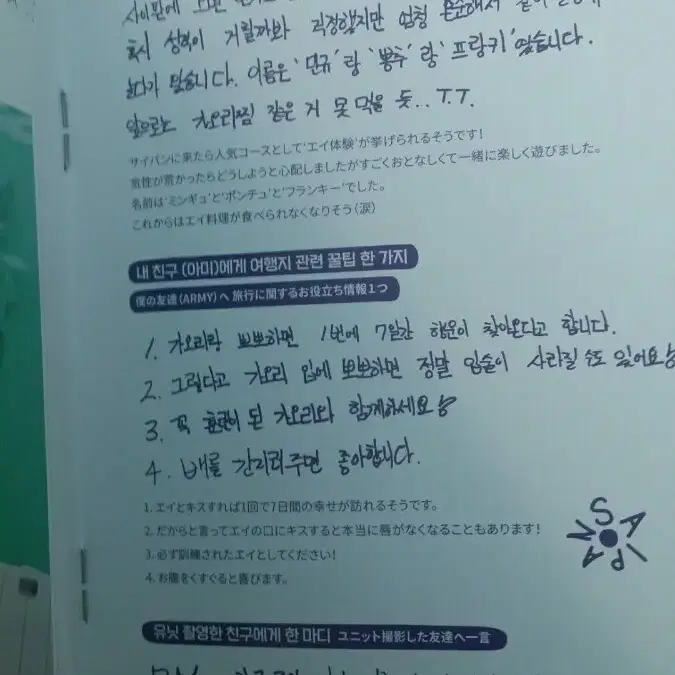 사이판에 오면
혹시 성격이 거칠까봐 걱정했지만 엄청 온순해서 같이 
놀다가 왔습니다. 이름은 '민규'랑 '뽕추'랑 '프랑키'였습니다.
앞으로는 가오리찜 같은 거 못 먹을 듯.. T.T.
サイパンに来たら人気コースとして'エイ体験'が挙げられるそうです!
気性が荒かったらどうしようと心配しましたがすごくおとなしくて一緒に楽しく遊びました。
名前は'ミンギュ'と'ポンチュ'と'フランキー'でした。
これからはエイ料理が食べられなくなりそう(涙)
내 친구 (아미)에게 여행지 관련 꿀팁 한 가지
僕の友達(ARMY)へ 旅行に関するお役立ち情報1つ
1. 가오리랑 뽀뽀하면 1번에 7일간 행운이 찾아온다고 합니다.
2. 그렇다고 가오리 입에 뽀뽀하면 정말 입술이 사라질 수도 있어요
3. 꼭 훈련이 된 가오리와 함께하세요
4. 배를 간지려주면 좋아합니다.
1. エイとキスすれば1回で7日間の幸せが訪れるそうです。
2. だからと言ってエイの口にキスすると本当に唇がなくなることもあります!
3. 必ず訓練されたエイとしてください!
4. お腹をくすぐると喜びます。
SAIPAN
유닛 촬영한 친구에게 한 마디 ユニット撮影した友達へ一言